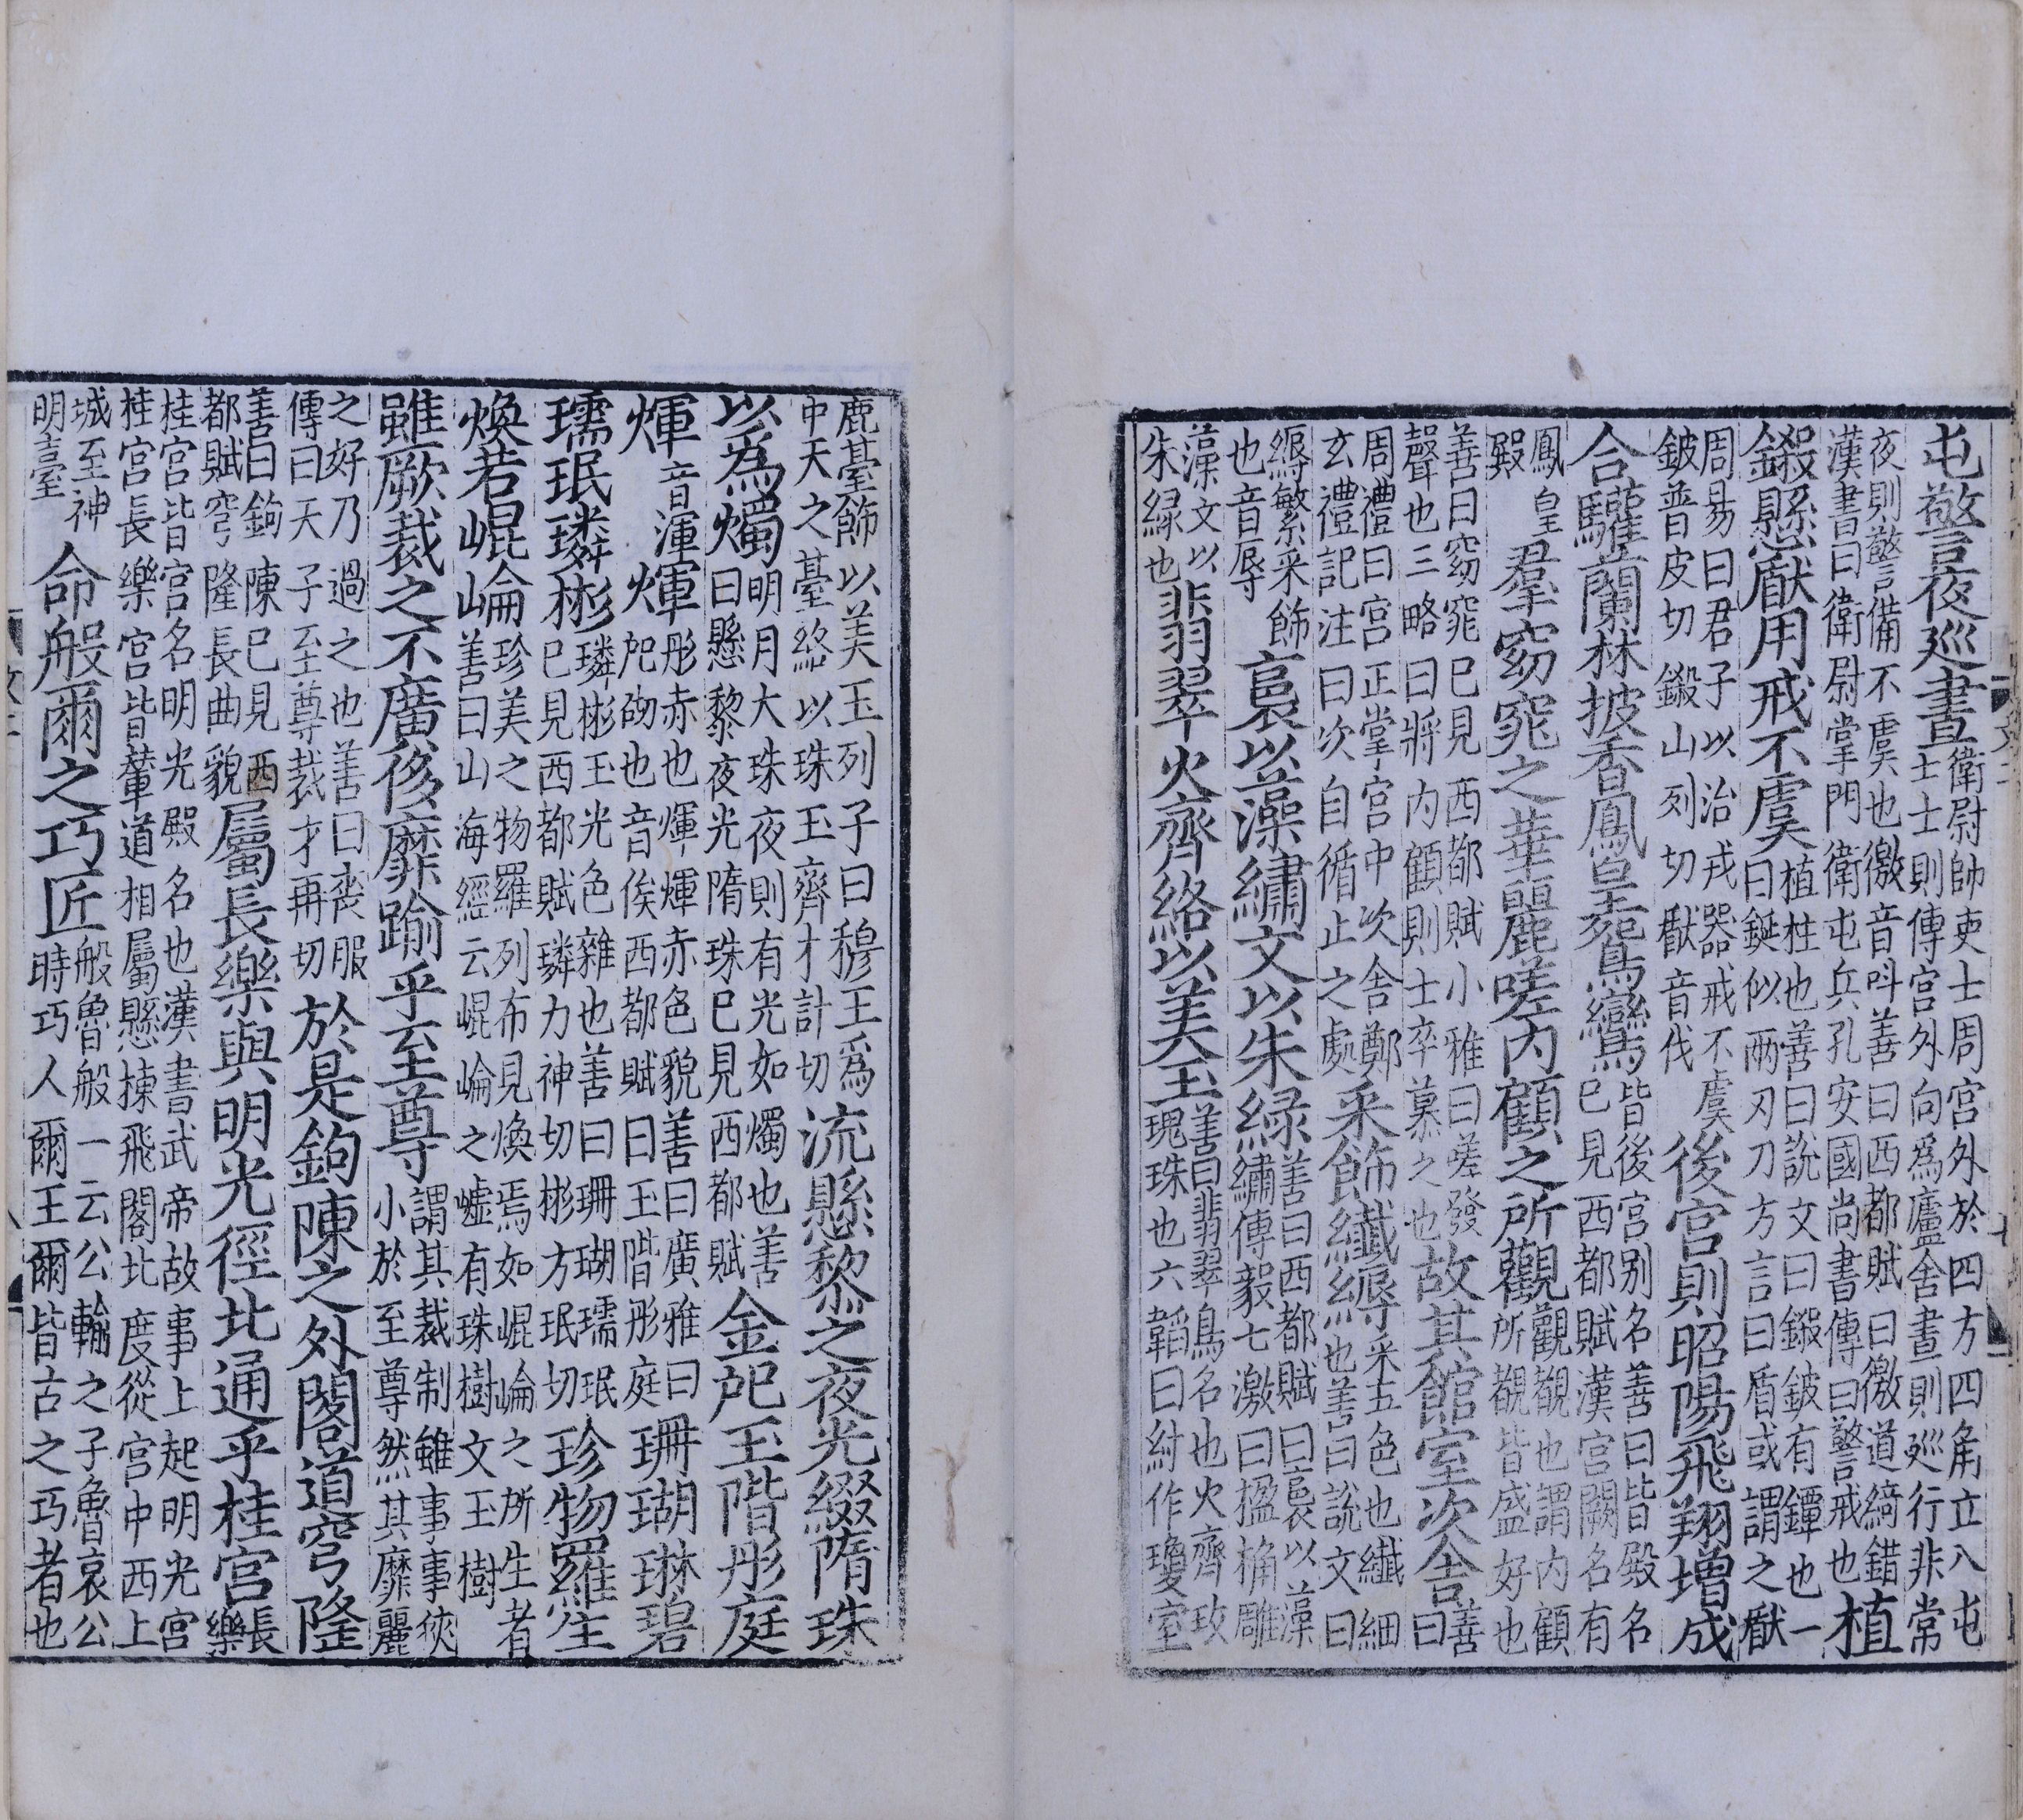 屯警夜巡晝衛尉帥吏士周宮外於四方四角立八屯士士則傳宮外向爲廬舍晝則巡行非常
夜則警備不虞也徼音呌善曰西都賦曰徼道綺錯漢書曰衛尉掌門衛屯兵孔安國尚書傳曰警戒也植
鎩懸瞂用戒不虞植柱也善曰說文曰鎩鈹有鐔也一曰鋋似兩刃刀方言曰盾或謂之瞂
周易曰君子以治戎器戒不虞鈹普皮切鎩山列切瞂音伐後宮則昭陽飛翔增成
合驩蘭林披香鳳皇鴛鸞皆後宮别名善曰皆殿名已見西都賦漢宮闕名有
鳳皇殿羣窈窕之華麗嗟内顧之所觀觀觀也謂内顧所觀皆盛好也
善曰窈窕已見西都賦小雅曰嗟發聲也三略曰將内顧則士卒慕之也故其館室次舍善曰
周禮曰宮正掌宮中次舍鄭玄禮記注曰次自循止之處采飾纖縟采五色也纖細也善曰說文曰
縟繁采飾也音辱裛以藻繡文以朱緑善曰西都賦曰裛以藻繡傳毅七激曰楹桷雕
藻文以朱緑也翡翠火齊絡以美玉善曰翡翠鳥名也火齊玫瑰珠也六韜曰紂作瓊室
鹿臺飾以美玉列子曰穆王爲中天之臺絡以珠玉齊才計切流懸黎之夜光綴隋珠
以爲燭明月大珠夜則有光如燭也善曰懸黎夜光隋珠已見西都賦金戺玉階彤庭
煇音渾煇彤赤也煇煇赤色貌善曰廣雅曰戺砌也音俟西都賦曰玉階彤庭珊瑚琳碧
瓀珉璘彬璘彬玉光色雜也善曰珊瑚瓀珉已見西都賦璘力神切彬方珉切珍物羅生
煥若崐崘珍美之物羅列布見煥焉如崐崘之所生者善曰山海經云崐崘之墟有珠樹文玉樹
雖厥裁之不廣侈靡踰乎至尊謂其裁制雖事事狹小於至尊然其靡麗
之好乃過之也善曰喪服傳曰天子至尊裁才再切於是鉤陳之外閣道穹隆
善曰鉤陳已見西都賦穹隆長曲貌屬長樂與明光徑北通乎桂宮長樂
桂宮皆宮名明光殿名也漢書武帝故事上起明光宮桂宮長樂宮皆輦道相屬懸棟飛閣北度從宮中西上
城至神明臺命般爾之巧匠般魯般一云公輸之子魯哀公時巧人爾王爾皆古之巧者也